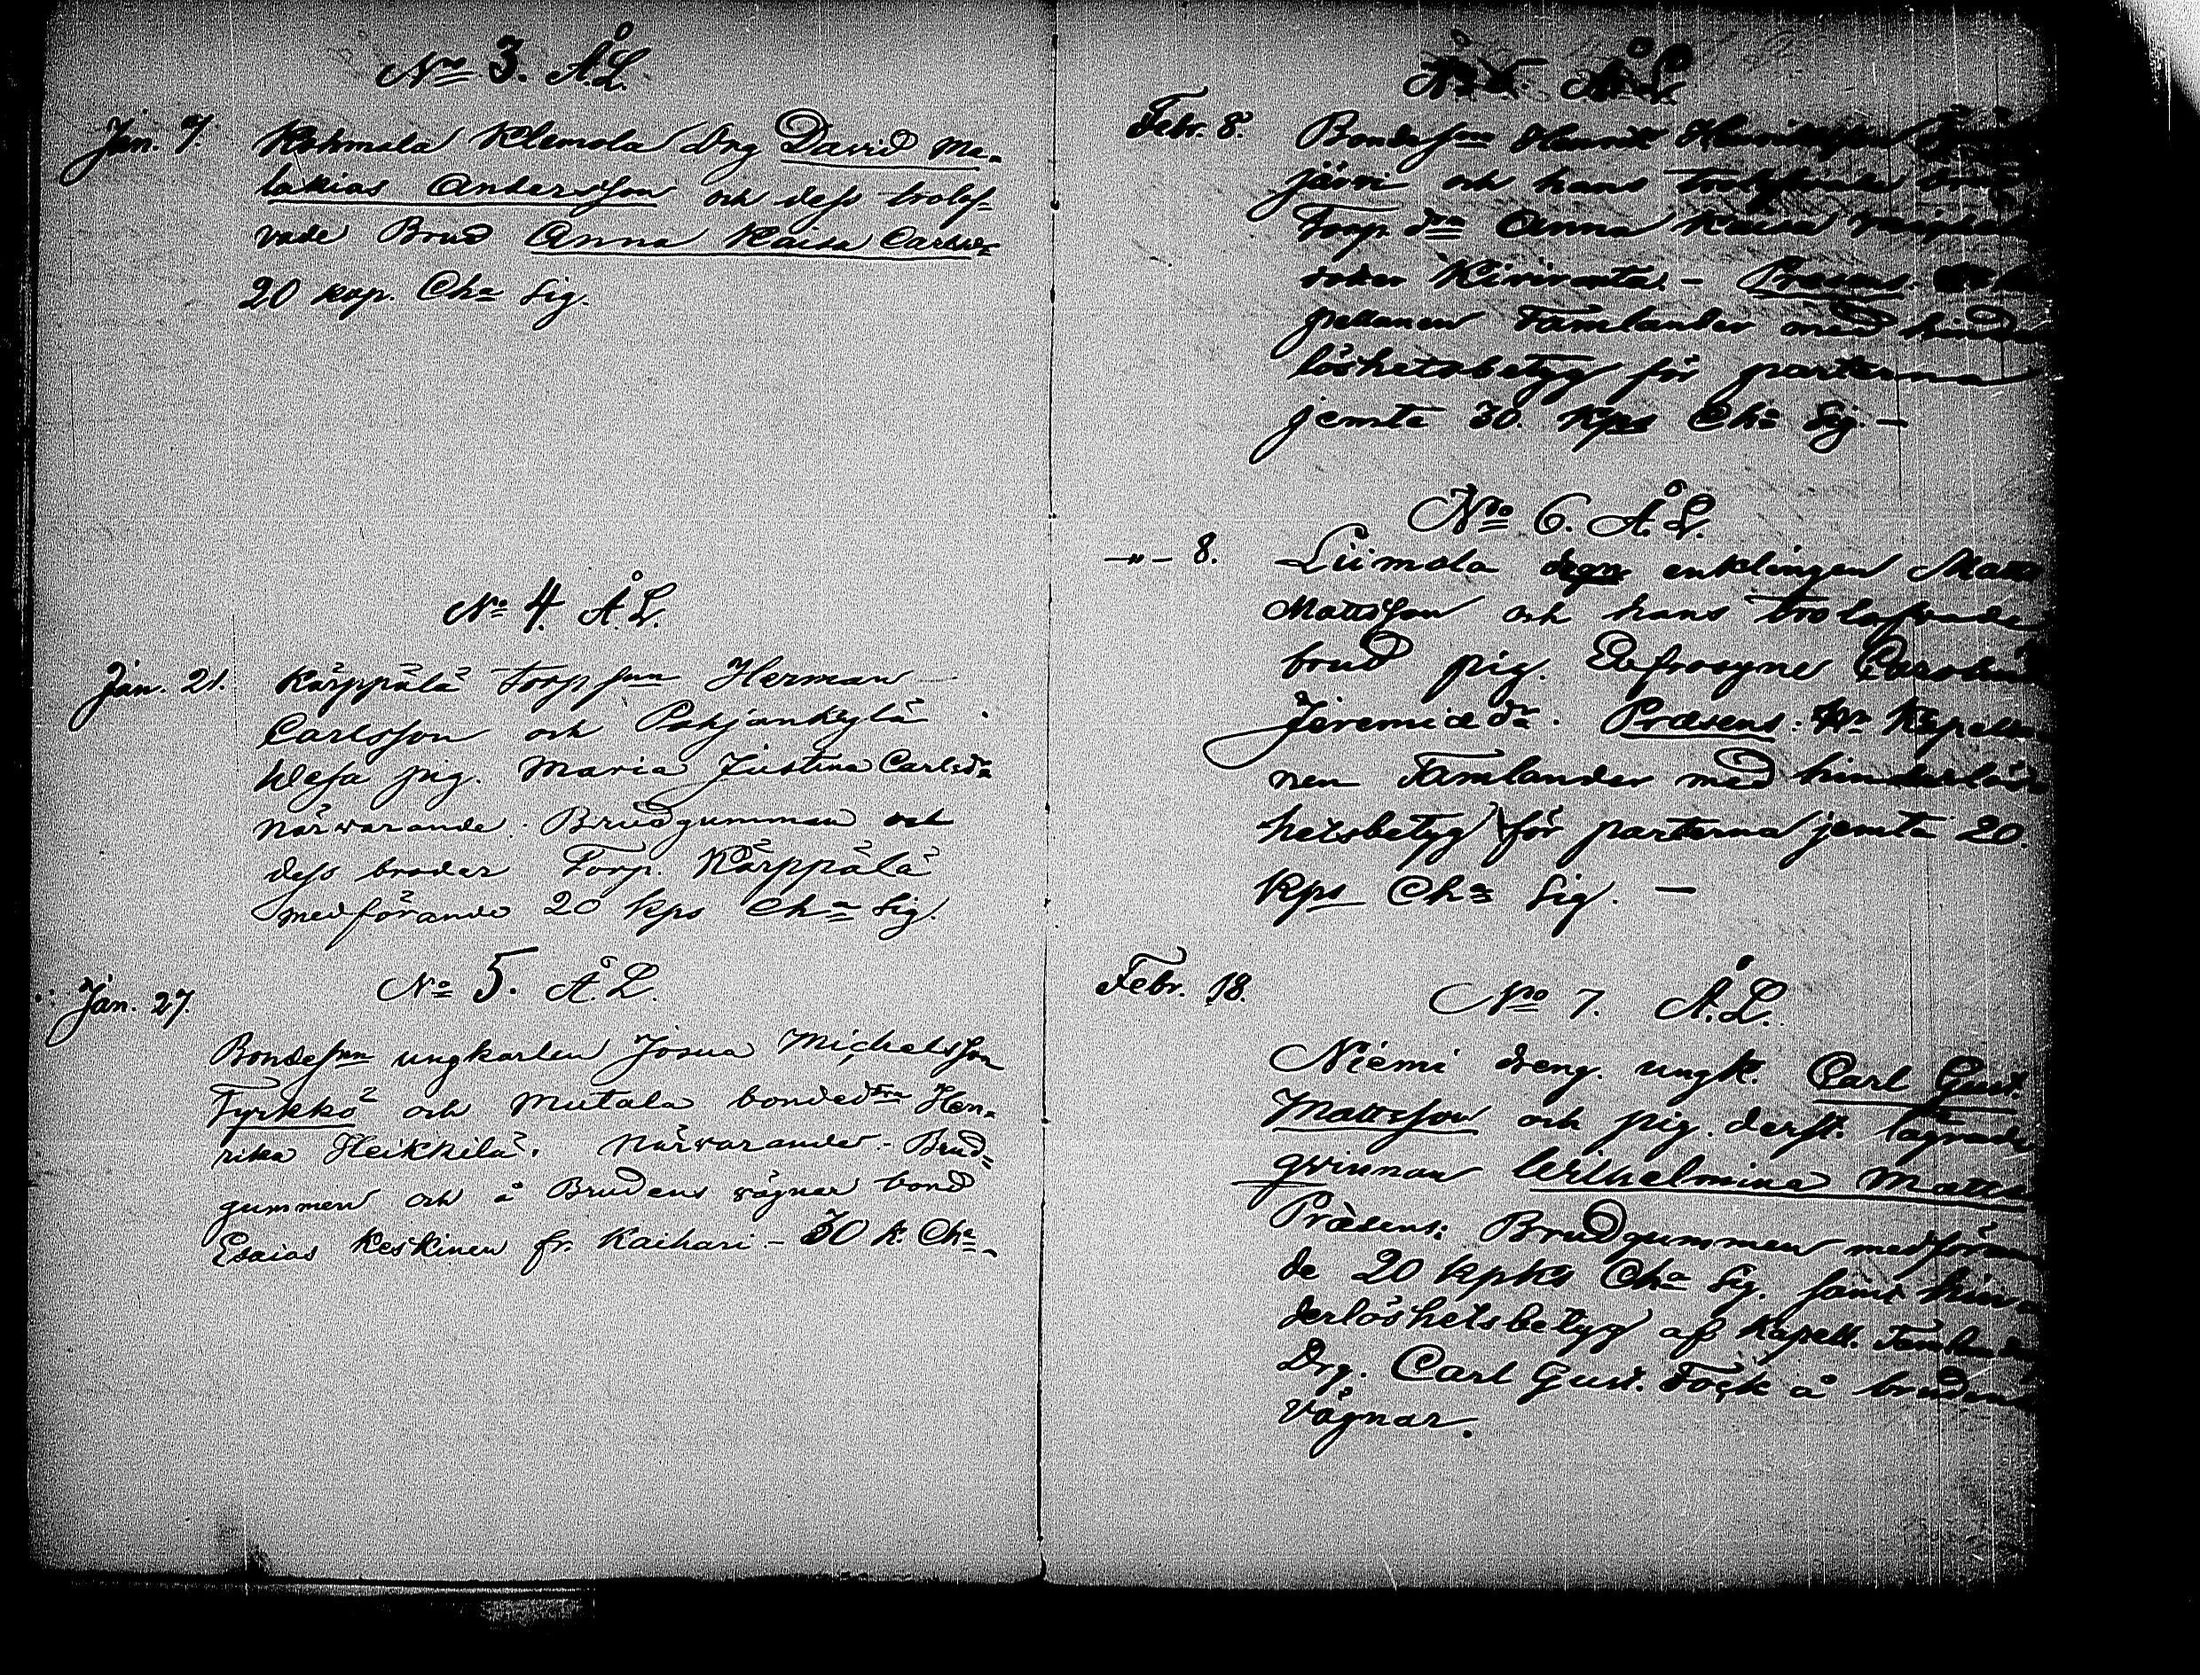 No 3. Å.L.
Jan. 7. Kohmala Klemola Drg David Me-
lakias Andersson och dess trolof-
vade Brud Anna Kaisa Carlsdr
20 kop. Cha Sig.
No 4. Å.L.
Jan. 21. Kärppälä Torpson Herman
Carlsson och Pohjankylä
Klefa pig. Maria Justina Carlsdr
närvarande. Brudgumman och
dess broder Torp. Kärppälä
medförande 20 kps Cha Sig.
No 5. Å.L.
Jan. 27.
Bondeson ungkarlen Josua Michelsson
Tyrkkö och Mutala bondedtra Hen-
rika Heikkilä. Närvarande - Brud=
gummen och å Brudens vägnar bond
Esaias Keskinen fr. Kaihari - 30 k. Cha
Å.L.
Febr. 8. Bondeson Henrik Henriksson
järvi och hans
Torp. dra Anna Kaisa
Kiviranta. - Præsens.
pellanen Tamlander med hinder
löshetsbetyg för parterna
jemte 30. Kps Cha Sig. -
No 6. Å.L.
-"- 8. Liimola drgn enklingen Matts
Mattsson och hans trolofvade
brud pig. Eufrosyne Carolina
Jeremiædr. Præsens: Hr Kapella
nen Tamlander med hinderlös
hetsbetyg för parterna jemte 20.
Kps Cha Sig. -
Febr. 18. No 7. Å.L.
Niemi dreng. ungk. Carl Gust.
Mattsson och pig. derst. lägrade
qvinnan Wilhelmina Matts
Præsens: Brudgummen medföran
de 20 kpks Cha Sig. samt hin
derlöshetsbetyg af Kapell. Tamlander
Drg. Carl Gust. Fock å brudens
vägnar.